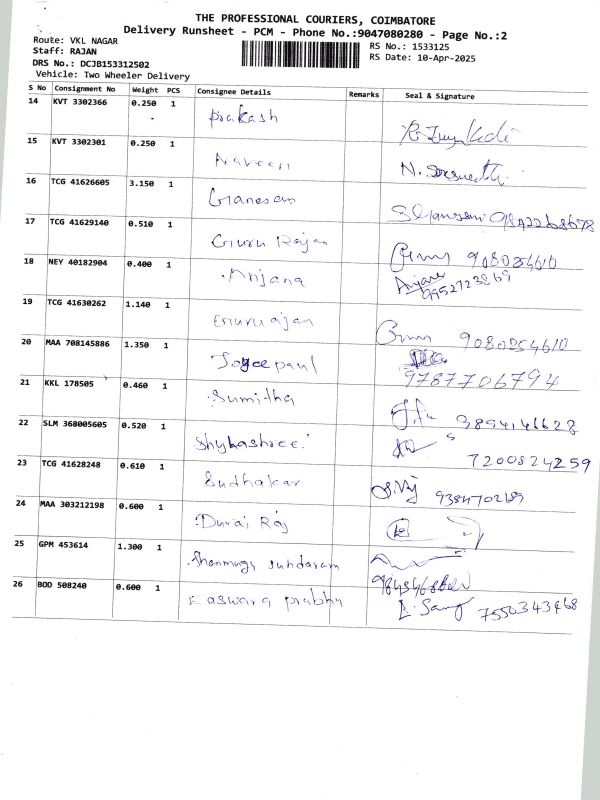 THE PROFESSIONAL COURIERS, COIMBATORE
Delivery Runsheet - PCM - Phone No.:9047080280 - Page No.:2
Route: VKL NAGAR
Staff: RAJAN
DRS No.: DCJB153312502
Vehicle: Two Wheeler Delivery
RS No.: 1533125
RS Date: 10-Apr-2025
S No Consignment No Weight PCS Consignee Details Remarks Seal & Signature
14 KVT 3302366 0.250 1 Prakash
15 KVT 3302301 0.250 1 Naveen
16 TCG 41626605 3.150 1 Ganesan
17 TCG 41629140 0.510 1 Guru Rajan 9080254610
18 NEY 40182904 0.400 1 Anjana Anjana 9952723869
19 TCG 41630262 1.140 1 Gururajan 9080254610
20 MAA 708145886 1.350 1 Joyce paul 9787706794
21 KKL 178505 0.460 1 Sumitha
22 SLM 368005605 0.520 1 Shylashree 7200824259
23 TCG 41628248 0.610 1 Sudhakar 9384702189
24 MAA 303212198 0.600 1 Durai Raj
25 GPM 453614 1.300 1 Shanmuga Sundaram
26 BOD 508240 0.600 1 Easwara prabhu 7550343468